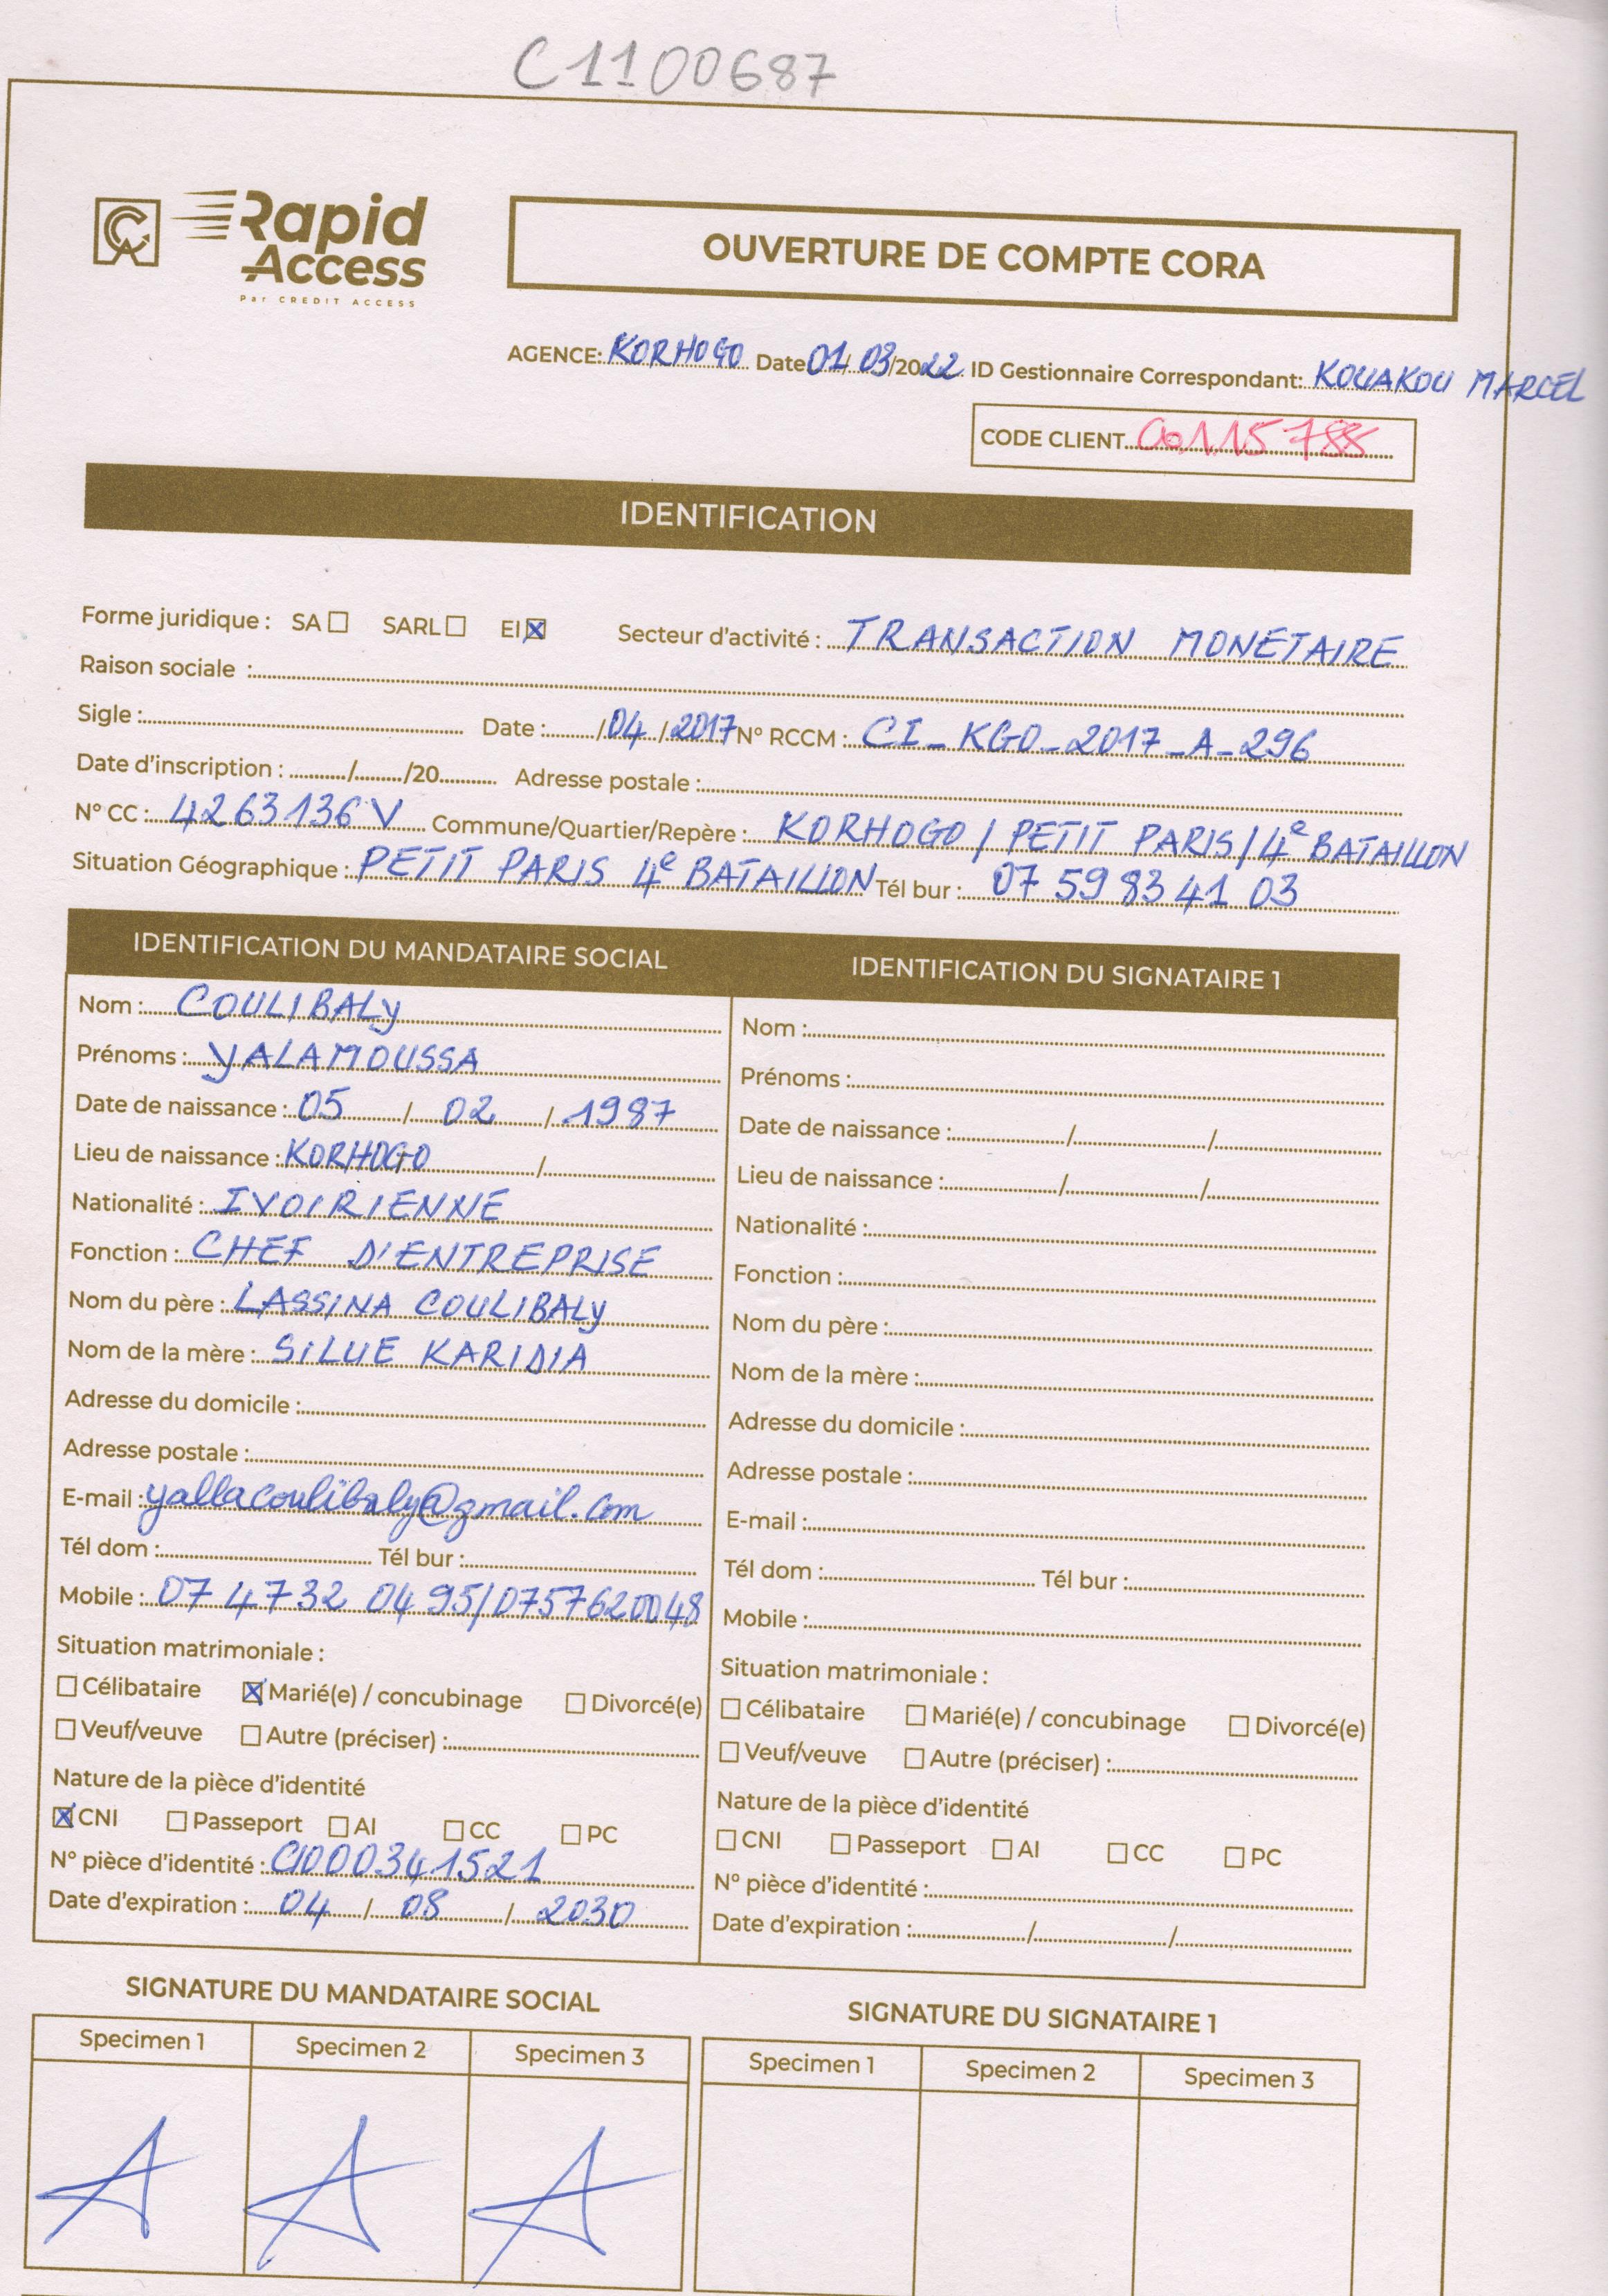 C1100687
Rapid
Access
Par CREDIT ACCESS
OUVERTURE DE COMPTE CORA
AGENCE: KORHOGO Date 01/03/2022 ID Gestionnaire Correspondant: KOUAKOU MARCEL
CODE CLIENT 00115788
IDENTIFICATION
Forme juridique : SA ☐ SARL ☐ EI ☒ Secteur d'activité : TRANSACTION MONETAIRE
Raison sociale :
Sigle : Date : /04/2017 N° RCCM : CI_KGO_2017_A_296
Date d'inscription : / /20 Adresse postale :
N° CC : 4263136 V Commune/Quartier/Repère : KORHOGO / PETIT PARIS / 4e BATAILLON
Situation Géographique : PETIT PARIS 4e BATAILLON Tél bur : 07 59 83 41 03
IDENTIFICATION DU MANDATAIRE SOCIAL
Nom : COULIBALY
Prénoms : YALAMOUSSA
Date de naissance : 05 / 02 / 1987
Lieu de naissance : KORHOGO /
Nationalité : IVOIRIENNE
Fonction : CHEF D'ENTREPRISE
Nom du père : LASSINA COULIBALY
Nom de la mère : SILUE KARIDIA
Adresse du domicile :
Adresse postale :
E-mail : yallacoulibaly@gmail.com
Tél dom : Tél bur :
Mobile : 07 4732 04 95/0757620048
Situation matrimoniale :
☐ Célibataire ☒ Marié(e) / concubinage ☐ Divorcé(e)
☐ Veuf/veuve ☐ Autre (préciser) :
Nature de la pièce d'identité
☒ CNI ☐ Passeport ☐ AI ☐ CC ☐ PC
N° pièce d'identité : CI000341521
Date d'expiration : 04 / 08 / 2030
IDENTIFICATION DU SIGNATAIRE 1
Nom :
Prénoms :
Date de naissance : / /
Lieu de naissance : / /
Nationalité :
Fonction :
Nom du père :
Nom de la mère :
Adresse du domicile :
Adresse postale :
E-mail :
Tél dom : Tél bur :
Mobile :
Situation matrimoniale :
☐ Célibataire ☐ Marié(e) / concubinage ☐ Divorcé(e)
☐ Veuf/veuve ☐ Autre (préciser) :
Nature de la pièce d'identité
☐ CNI ☐ Passeport ☐ AI ☐ CC ☐ PC
N° pièce d'identité :
Date d'expiration : / /
SIGNATURE DU MANDATAIRE SOCIAL
Specimen 1 Specimen 2 Specimen 3
SIGNATURE DU SIGNATAIRE 1
Specimen 1 Specimen 2 Specimen 3